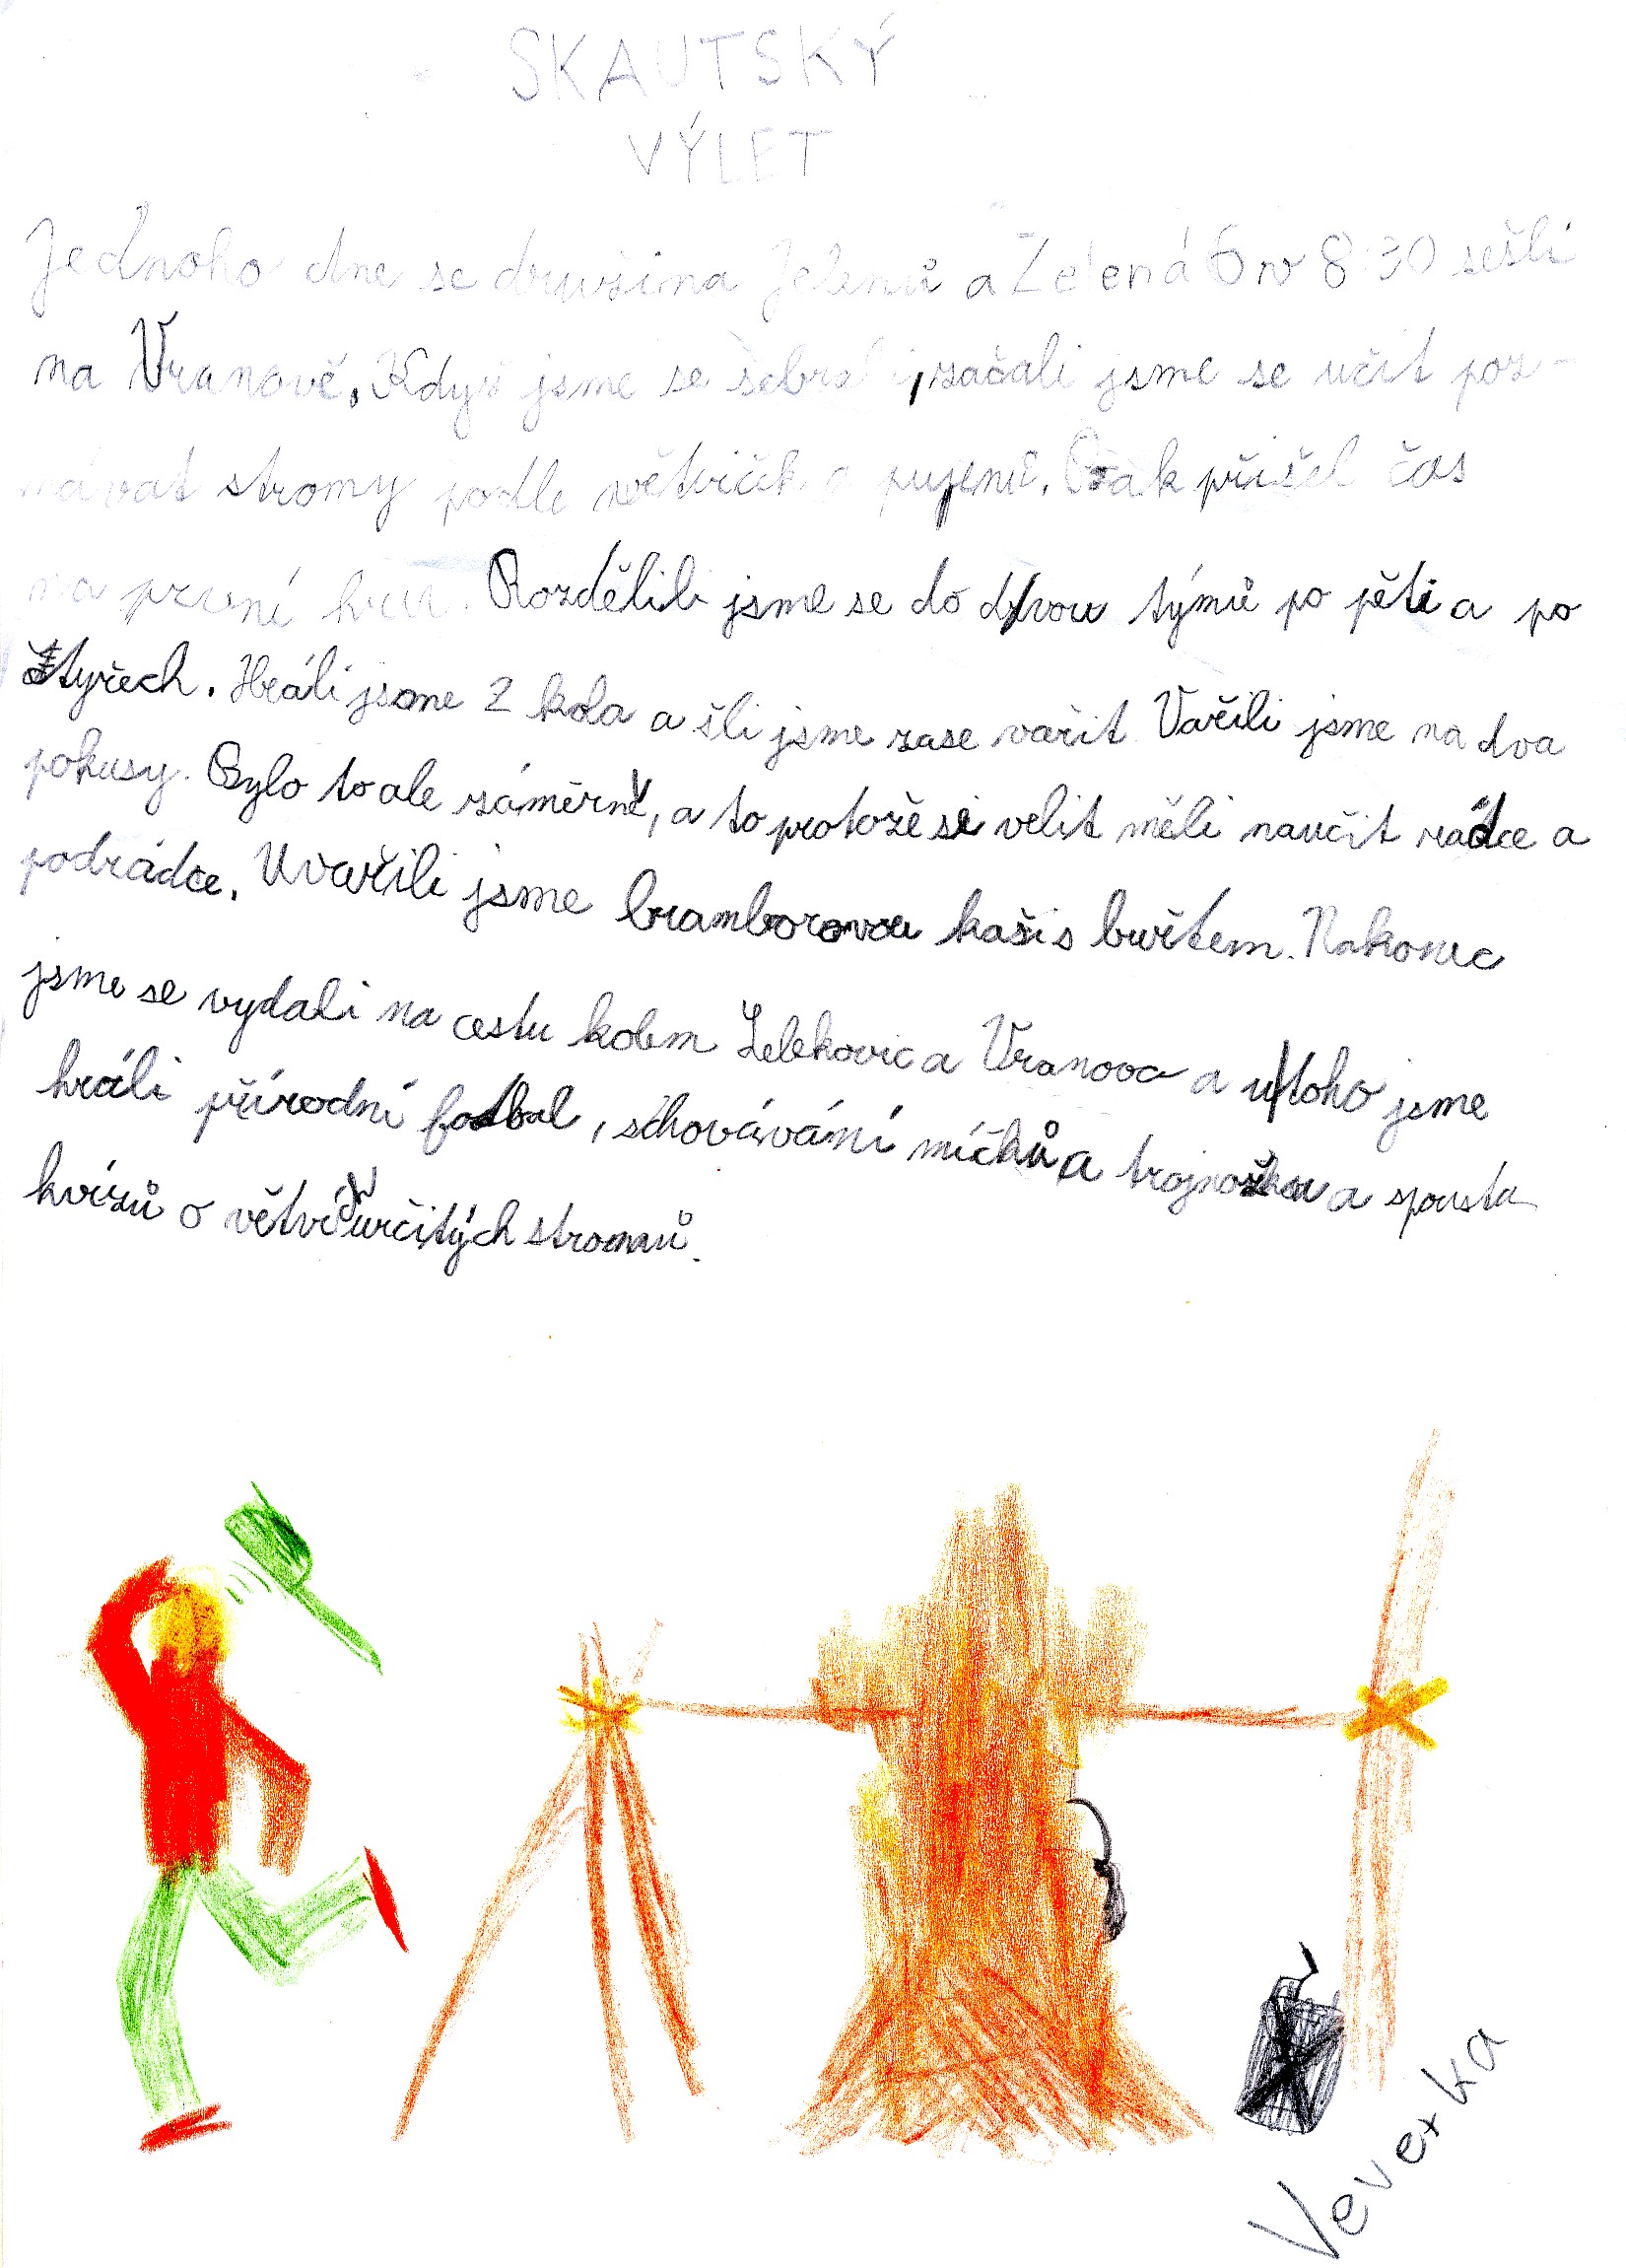 SKAUTSKÝ
VÝLET
Jednoho dne se družina Jelenů a Zelená 6 v 8:30 sešli
na Vranově. Když jsme se sebrali, začali jsme se učit poz-
návat stromy podle větviček a pupenů. Pak přišel čas
na první hru. Rozdělili jsme se do dvou týmů po pěti a po
čtyřech. Hráli jsme 2 kola a šli jsme zase vařit. Vařili jsme na dva
pokusy. Bylo to ale záměrně, a to protože si velit měli naučit rádce a
podrádce. Uvařili jsme bramborovou kaši s buřtem. Nakonec
jsme se vydali na cestu kolem Lelekovic a Vranova a u toho jsme
hráli přírodní fotbal, schovávání míčků a trojnožku a spousta
kvízů o větvič určitých stromů.
Veverka